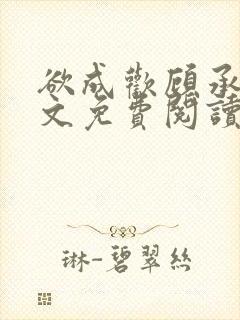 欲成歡顧承
文免費閱讀
琳-碧翠絲